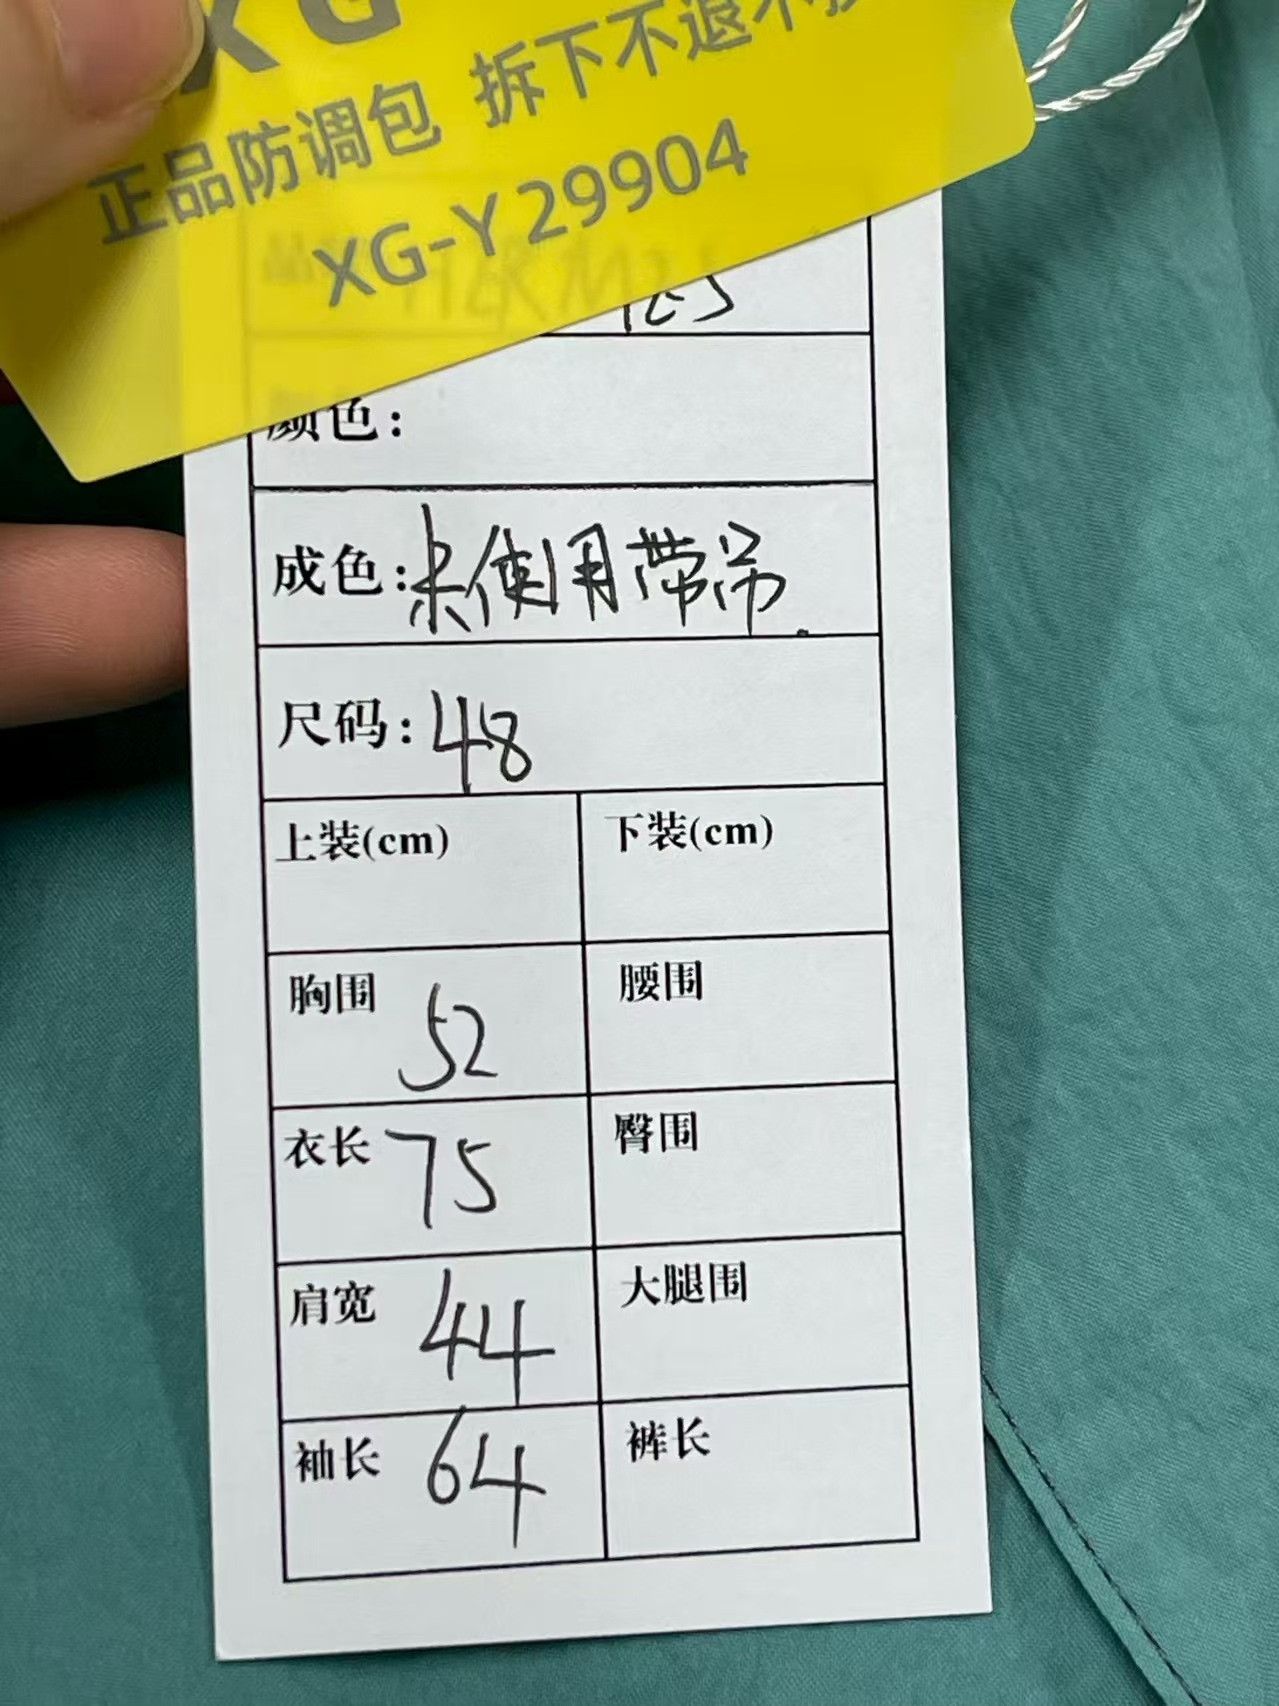 XG
正品防调包 拆下不退不换
XG-Y29904
品牌 HERMES
颜色:
成色:未使用带吊.
尺码:48
上装(cm) 下装(cm)
胸围 52 腰围
衣长 75 臀围
肩宽 44 大腿围
袖长 64 裤长